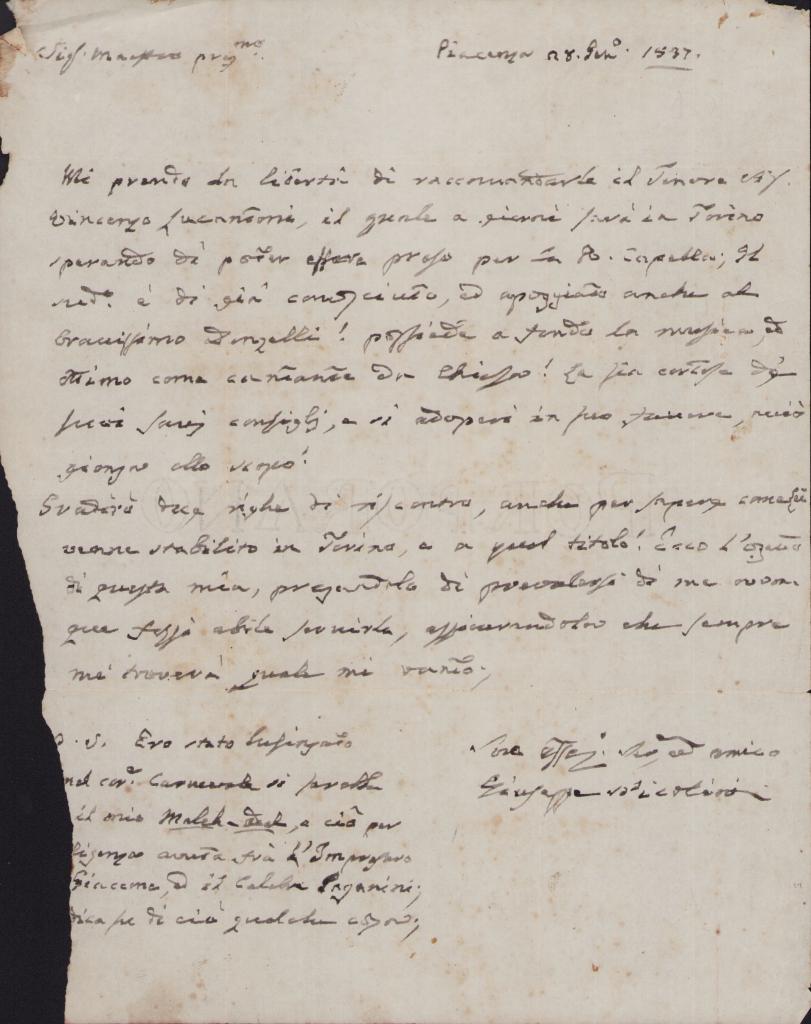 Sig.r Maestro preg.mo
Piacenza 28. Gen.o 1837.
Mi prendo la libertà di raccomandarle il Tenore Sig.
Vincenzo Lucantoni, il quale a giorni sarà in Torino
sperando di poter essere preso per la R. Capella; Il
med.o è di già conosciuto, ed apoggiato anche al
bravissimo Donzelli! possiede a fondo la musica, ed
ottimo come cantante da Chiesa! La sia cortese de
suoi savj consiglj, e si adoperi in suo favore, acciò
giunga allo scopo!
Gradirò due righe di riscontro, anche per sapere come
venne stabilito in Torino, e a qual titolo! Ecco l'oggetto
di questa mia, pregandola di prevalersi di me ovun-
que fossi abile servirla, assicurandolo che sempre
mi troverà quale mi vanto;
P. S. Ero stato lusingato
nel cor.e Carnevale si farebbe
il mio Malek-Adel, e ciò per
ligenza avuta frà l'Impresaro
Giaccone, ed il Celebre Paganini;
dica se di ciò qualche cosa;
Suo Ser.e ed amico
Giuseppe Nicolini